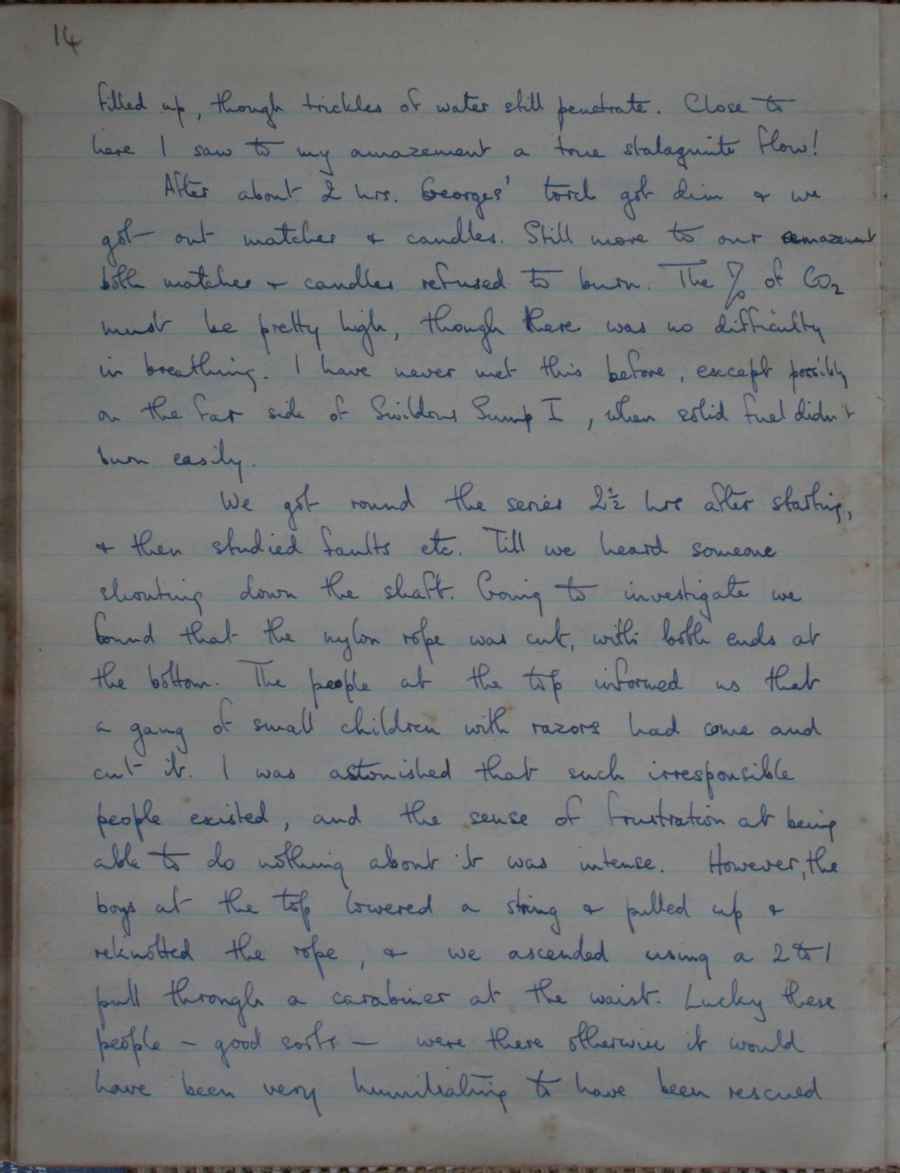 14
filled up, though trickles of water still penetrate. Close to
here I saw to my amazement a true stalagmite flow!
After about 2 hrs. Georges' torch got dim & we
got out matches & candles. Still more to our amazement
both matches & candles refused to burn. The % of CO2
must be pretty high, though there was no difficulty
in breathing. I have never met this before, except possibly
on the far side of Swildons Sump I, when solid fuel didn't
burn easily.
We got round the series 2½ hrs after starting,
& then studied faults etc. Till we heard someone
shouting down the shaft. Going to investigate we
found that the nylon rope was cut, with both ends at
the bottom. The people at the top informed us that
a gang of small children with razors had come and
cut it. I was astonished that such irresponsible
people existed, and the sense of frustration at being
able to do nothing about it was intense. However, the
boys at the top lowered a string & pulled up &
reknotted the rope, & we ascended using a 2 to 1
pull through a carabiner at the waist. Lucky these
people – good sorts – were there otherwise it would
have been very humiliating to have been rescued